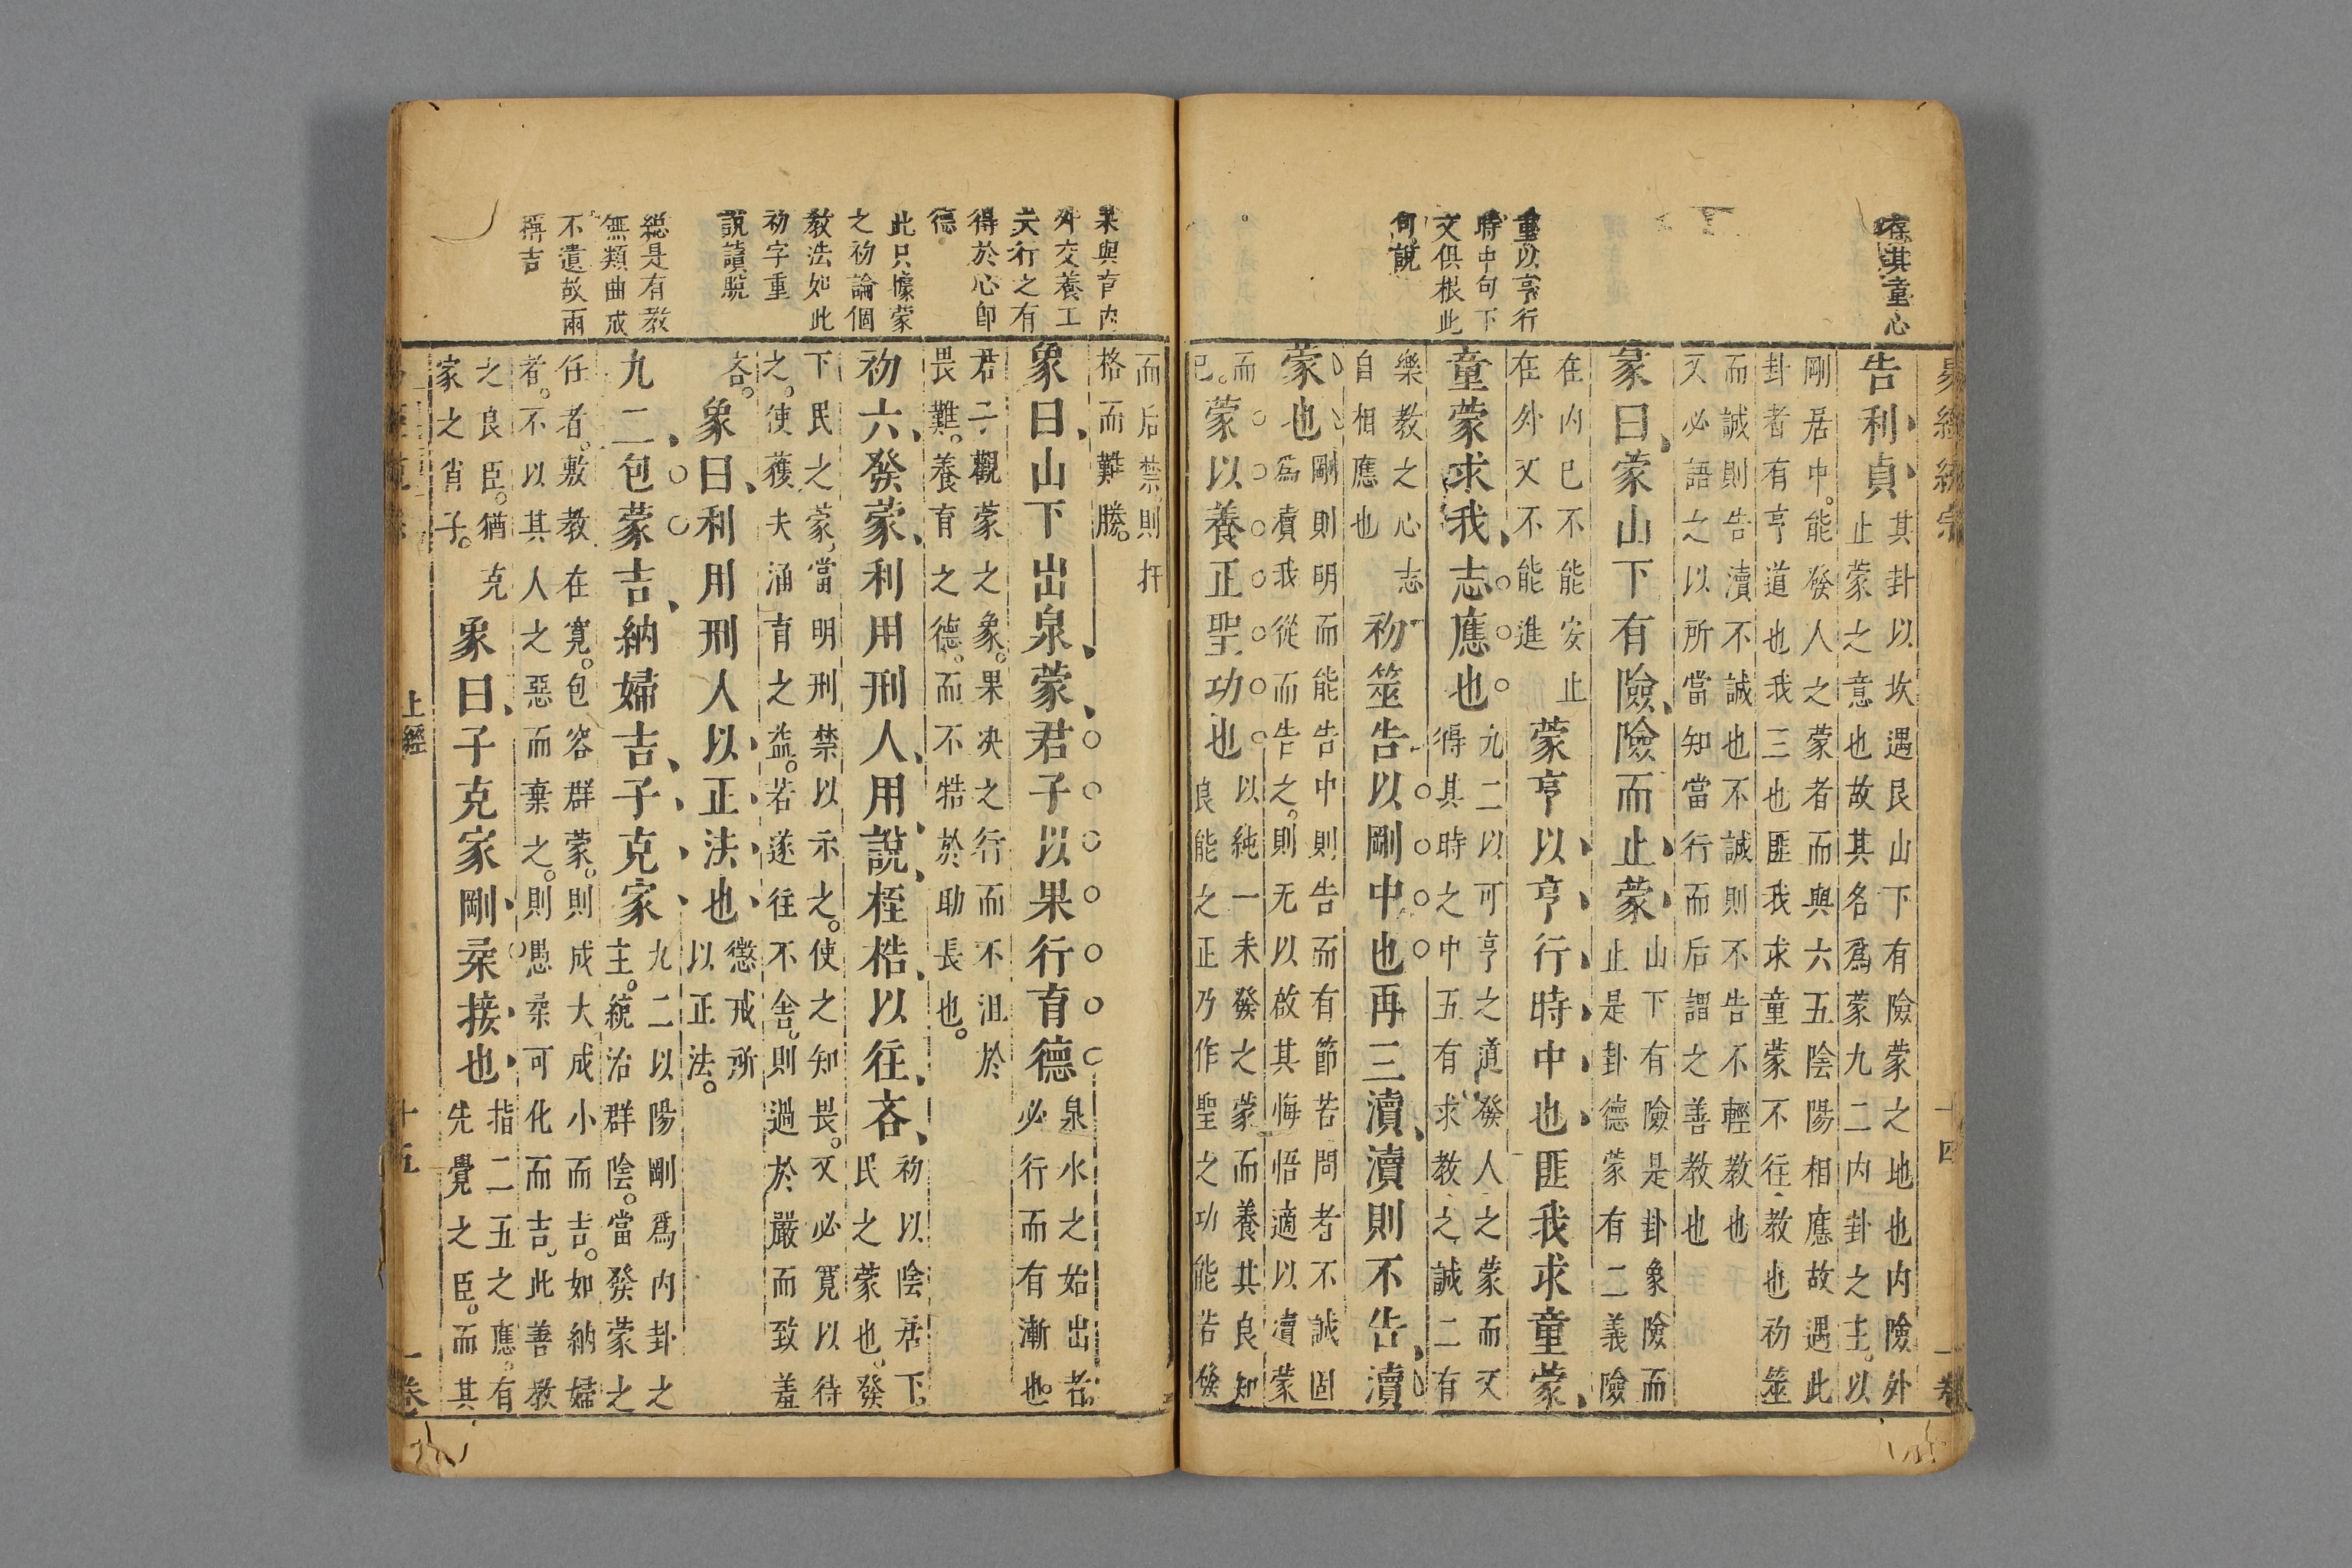 易經統宗
十四
一卷
存其童心
重以亨行
時中句下
文俱根此
何說
告利貞其卦以坎遇艮山下有險蒙之地也内險外
止蒙之意也故其名爲蒙九二内卦之主。以
剛居中。能發人之蒙者而與六五陰陽相應故遇此
卦者有亨道也我三也匪我求童蒙不往教也初筮
而誠則告瀆不誠也不誠則不告不輕教也
又必語之以所當知當行而后謂之善教也
彖曰蒙山下有險險而止蒙山下有險是卦象險而
止是卦德蒙有二義險
在内已不能安止
在外又不能進
蒙亨以亨行時中也匪我求童蒙
童蒙求我志應也九二以可亨之道發人之蒙而又
得其時之中五有求教之誠二有
樂教之心志
自相應也
初筮告以剛中也再三瀆瀆則不告瀆
蒙也剛則明而能告中則告而有節若問者不誠固
爲瀆我從而告之。則无以啟其悔悟適以瀆蒙
而
已。
蒙以養正聖功也以純一未發之蒙而養其良知
良能之正乃作聖之功能若發
果與育内
外交養工
夫行之有
得於心即
德
此只據蒙
之初論個
教法如此
初字重
說讀脫
總是有教
無類曲成
不遺故兩
稱吉
而后禁則扞
格而難勝。
象曰山下出泉蒙君子以果行育德泉水之始出者
必行而有漸也。
君子觀蒙之象。果决之行而不沮於
畏難。養育之德。而不牿於助長也。
初六發蒙利用刑人用說桎梏以往吝初以陰居下
民之蒙也。發
下民之蒙當明刑禁以示之。使之知畏。又必寬以待
之。使獲夫涵育之益。若遂往不舍。則過於嚴而致羞
吝。
象曰利用刑人以正法也懲戒所
以正法。
九二包蒙吉納婦吉子克家九二以陽剛爲内卦之
主。統治群陰。當發蒙之
任者。敷教在寬。包容群蒙。則成大成小而吉。如納婦
者。不以其人之惡而棄之。則愚柔可化而吉此善教
之良臣。猶克
家之肖子。
象曰子克家剛柔接也指二五之應。有
先覺之臣。而其
上經
十五
一卷